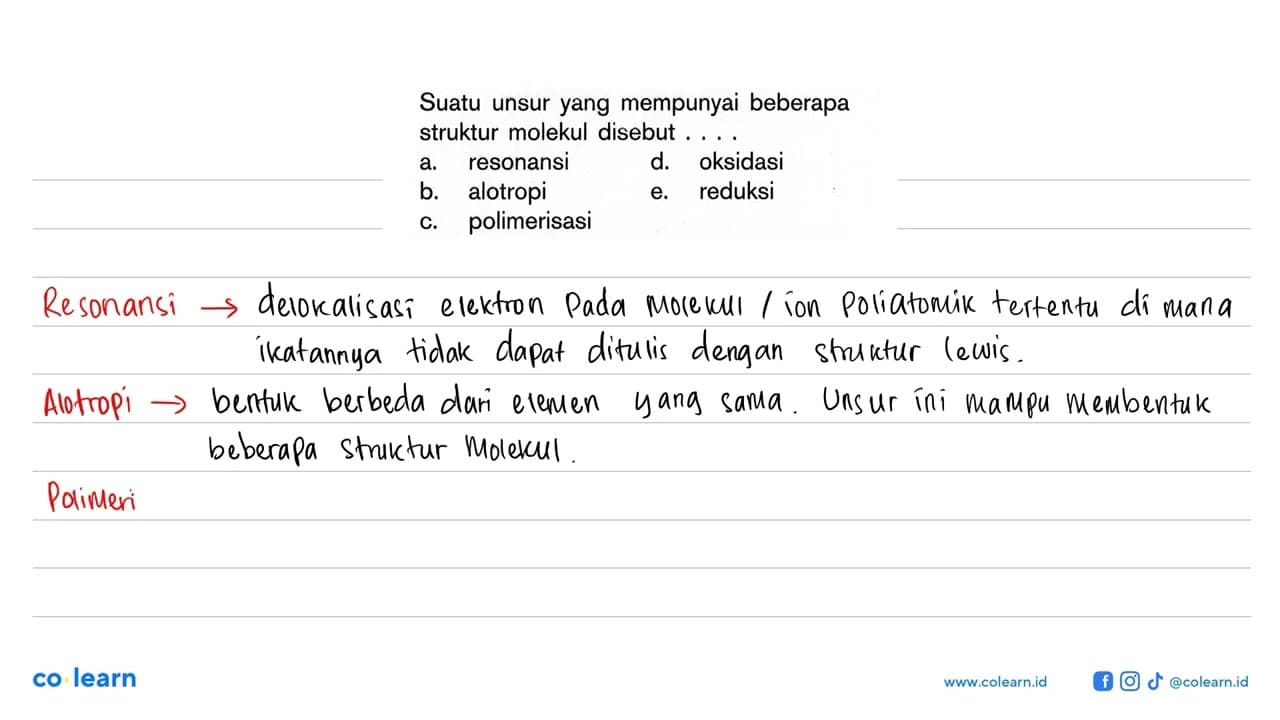 Suatu unsur yang mempunyai beberapa
struktur molekul disebut . . . .
a. resonansi d. oksidasi
b. alotropi e. reduksi
c. polimerisasi
Resonansi → delokalisasi elektron pada molekul / ion poliatomik tertentu di mana
ikatannya tidak dapat ditulis dengan struktur lewis.
Alotropi → bentuk berbeda dari elemen yang sama. Unsur ini mampu membentuk
beberapa struktur molekul.
Polimeri
co learn
www.colearn.id @colearn.id